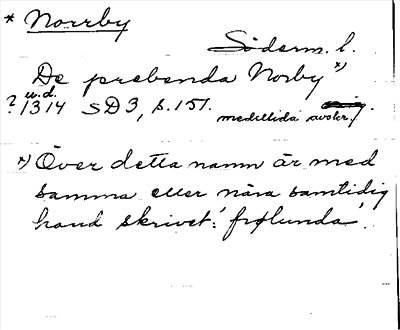 * Norrby
Söderm. l.
De prebenda Norby *)
u.d.
? 1314 SD 3, s. 151. medeltida avskr.
*) Över detta namn är med
samma eller nära samtidig
hand skrivet: 'frølunda'.